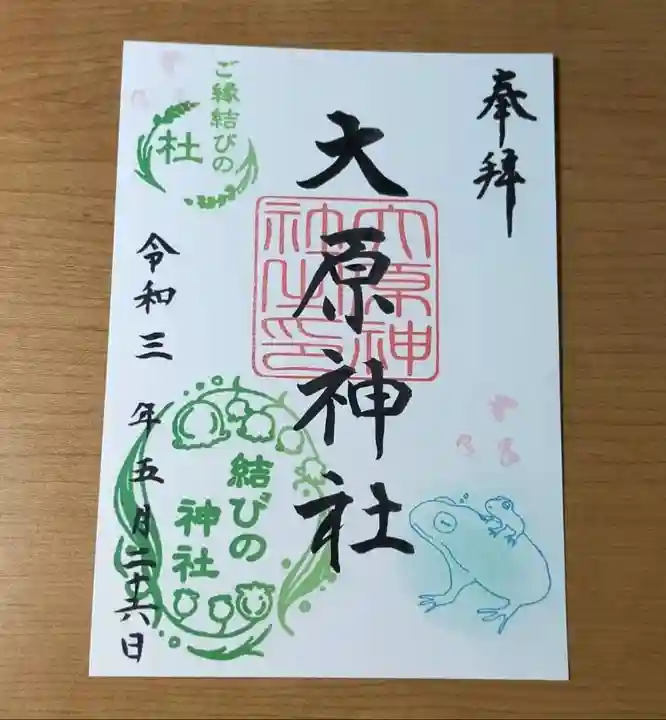 奉拝
大原神社
大原神
社之印
ご縁結びの
杜
令和三年五月二十六日
結びの
神社